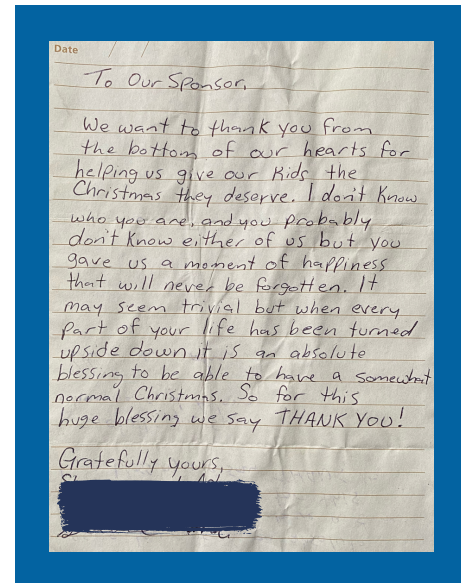 Date / /
To Our Sponsor,
We want to thank you from
the bottom of our hearts for
helping us give our kids the
Christmas they deserve. I don't know
who you are, and you probably
don't know either of us but you
gave us a moment of happiness
that will never be forgotten. It
may seem trivial but when every
part of your life has been turned
upside down it is an absolute
blessing to be able to have a somewhat
normal Christmas. So for this
huge blessing we say THANK YOU!
Gratefully yours,